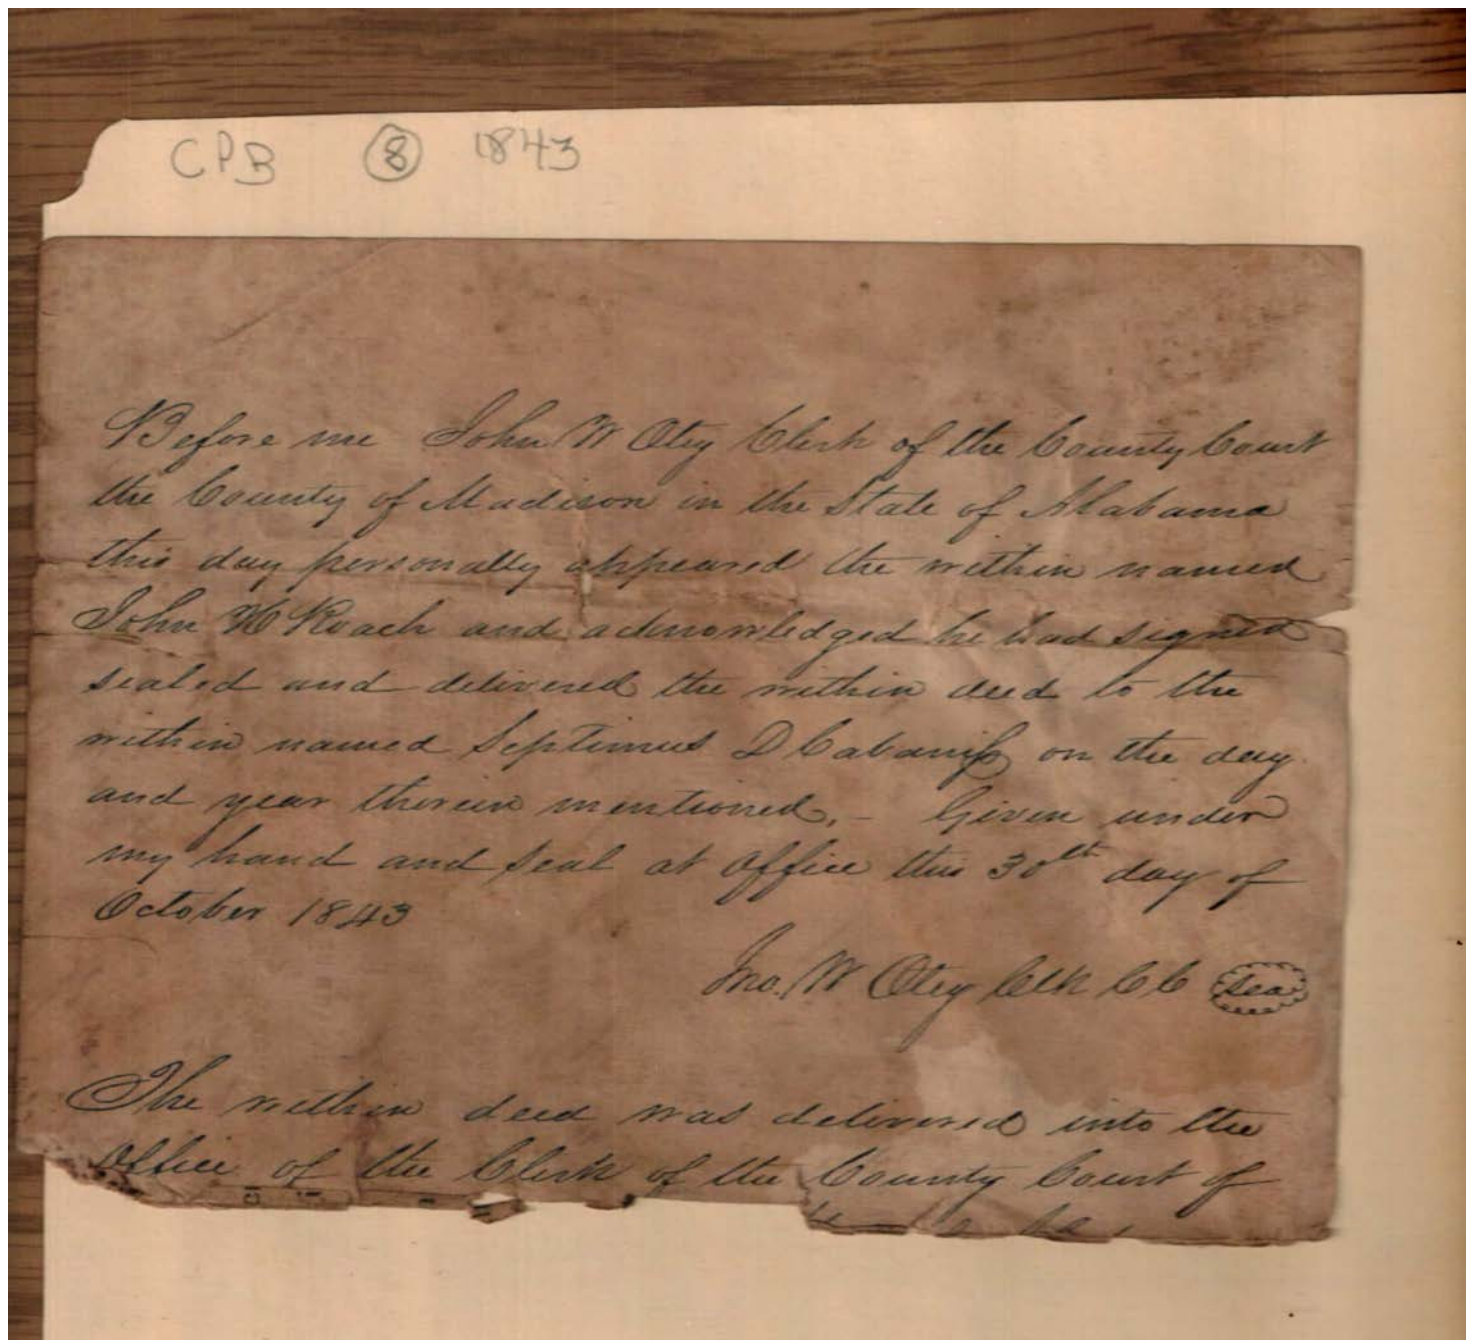 CPB 8 1843
Before me John W Otey Clerk of the County Court
the County of Madison in the State of Alabama
this day personally appeared the within named
John H Roach and acknowledged he had signed
sealed and delivered the within deed to the
within named Septimus D Cabaniss on the day
and year therein mentioned. - Given under
my hand and seal at office this 30th day of
October 1843
Jno. W Otey Clk CC Seal
The within deed was delivered into the
Office of the Clerk of the County Court of